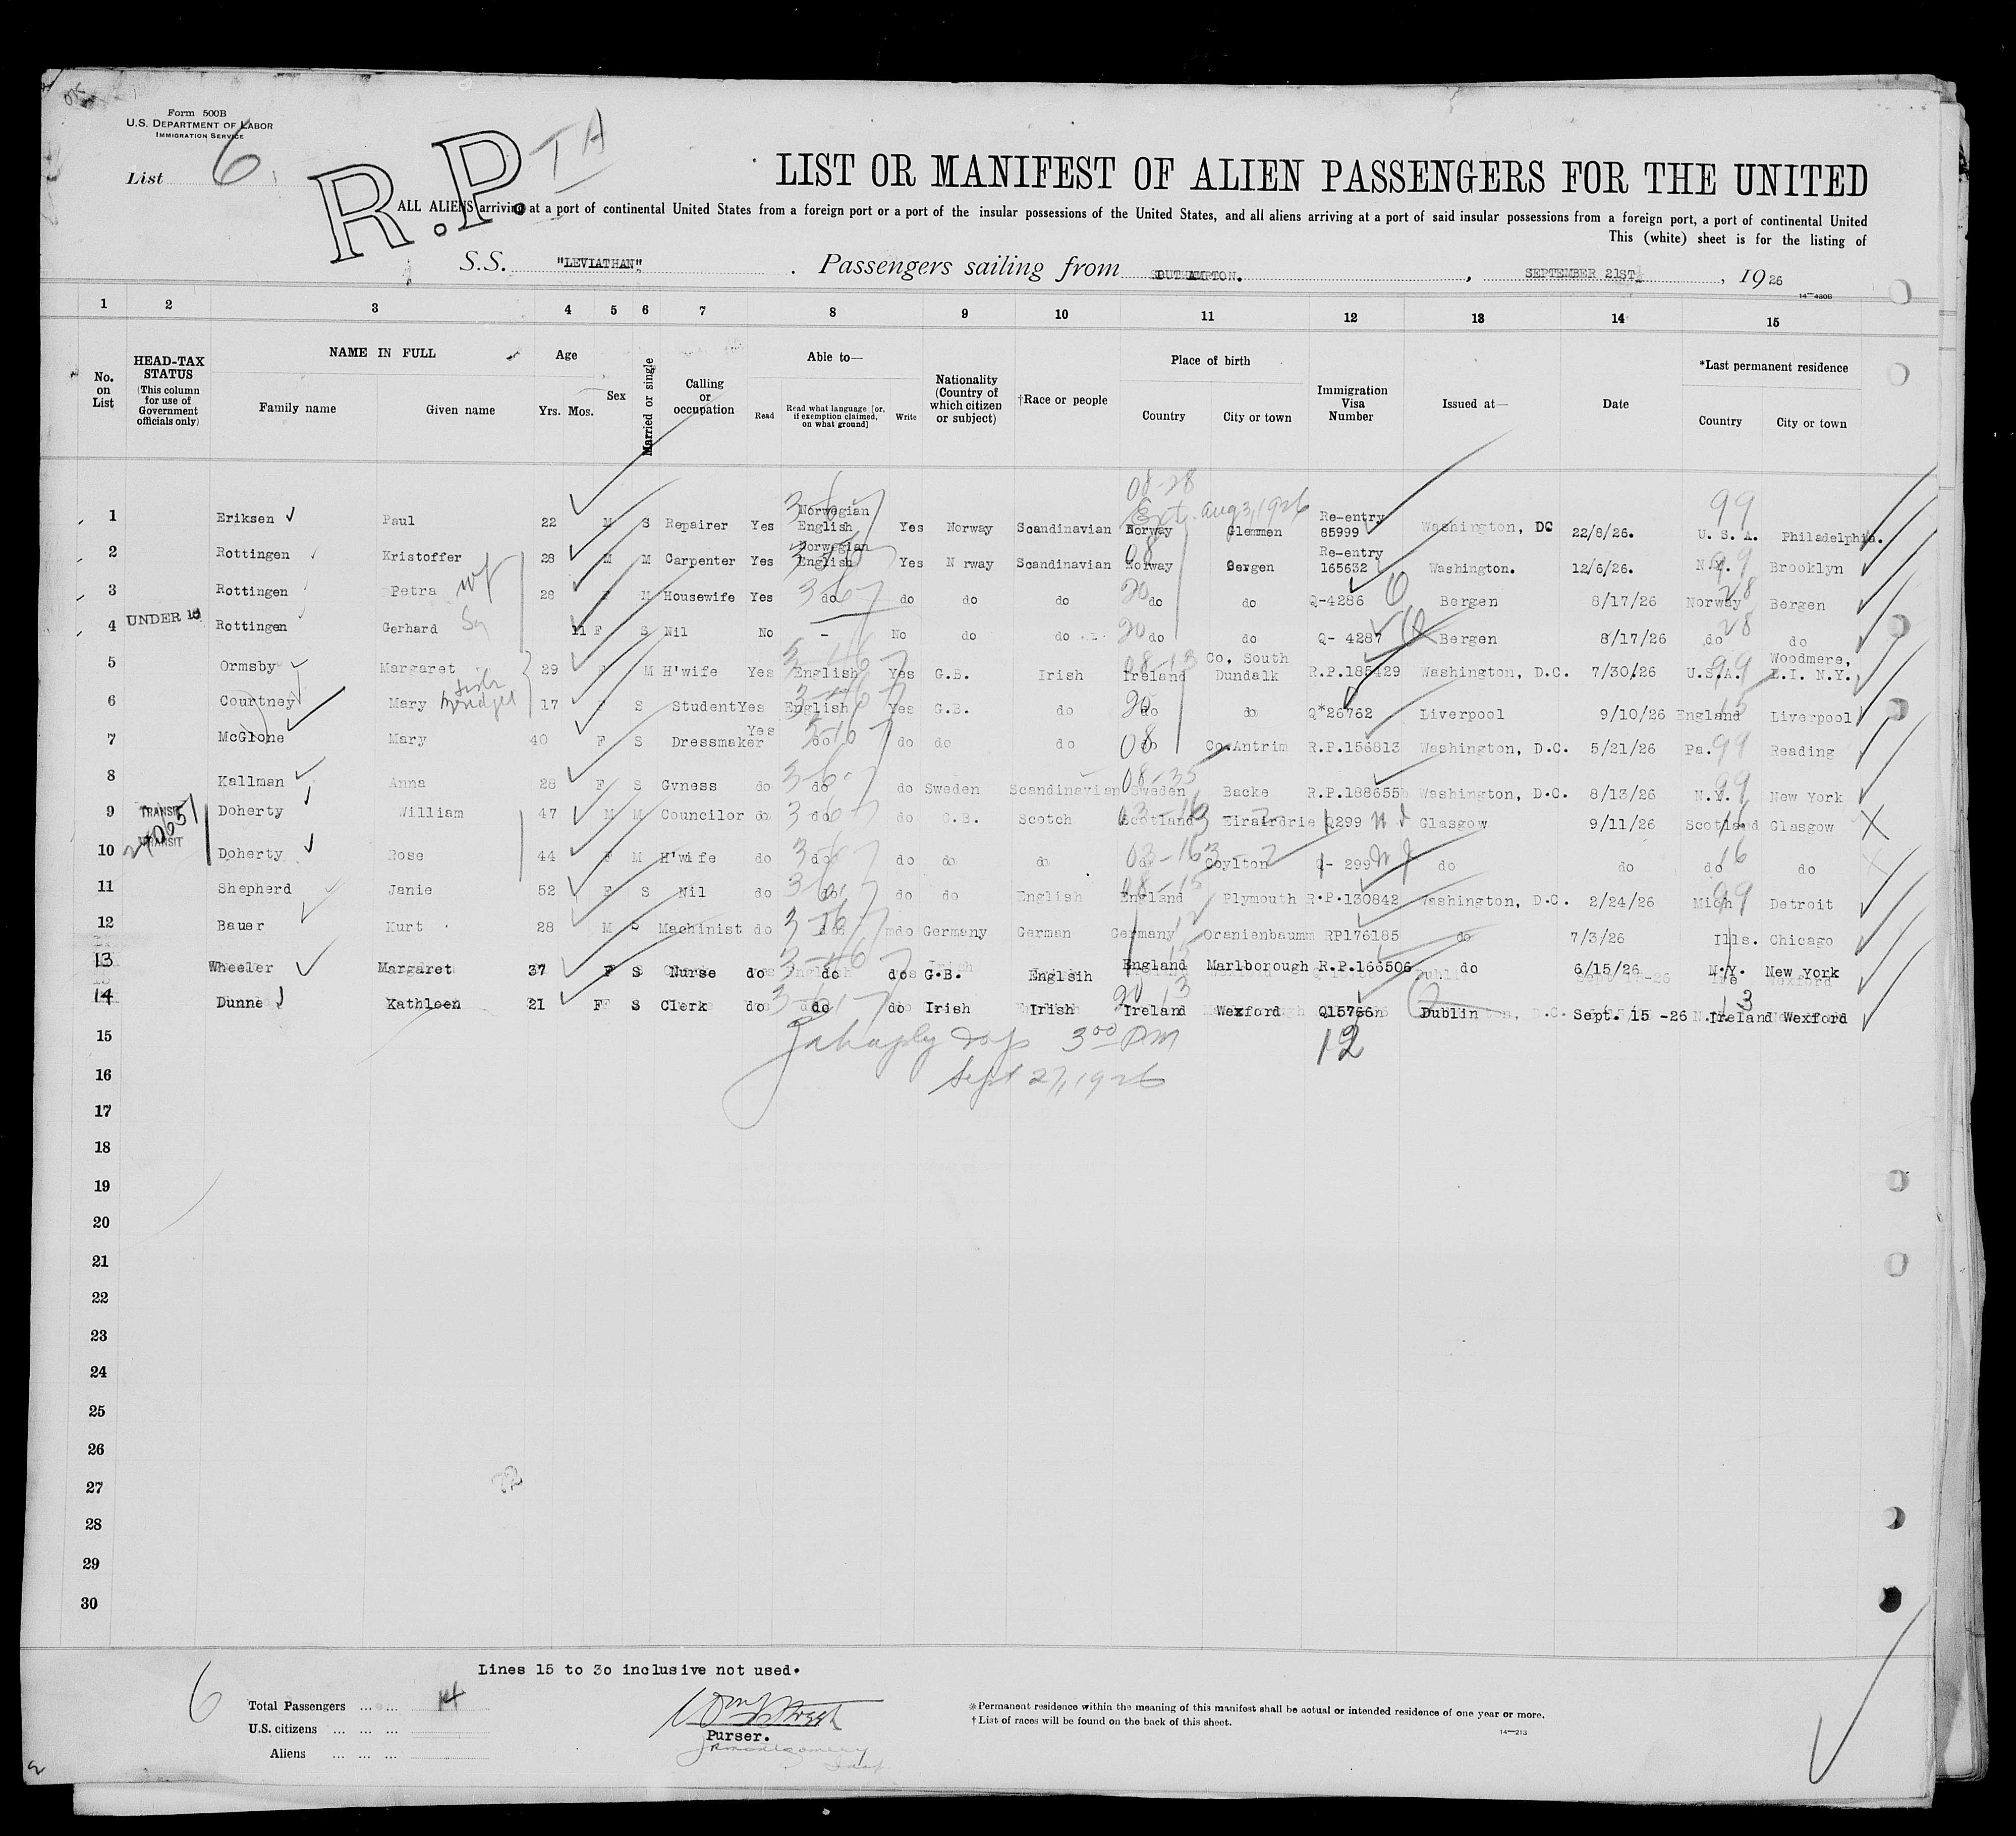 Form 500B
U.S. DEPARTMENT OF LABOR
IMMIGRATION SERVICE
List 6
R.P.
LIST OR MANIFEST OF ALIEN PASSENGERS FOR THE UNITED
ALL ALIENS arriving at a port of continental United States from a foreign port or a port of the insular possessions of the United States, and all aliens arriving at a port of said insular possessions from a foreign port, a port of continental United
This (white) sheet is for the listing of
S.S. "LEVIATHAN". Passengers sailing from SOUTHAMPTON. , SEPTEMBER 21ST , 1926
1 2 3 4 5 6 7 8 9 10 11 12 13 14 15
No. on List
HEAD-TAX STATUS (This column for use of Government officials only)
NAME IN FULL Family name Given name
Age Yrs. Mos.
Sex
Married or single
Calling or occupation
Able to— Read Read what language [or, if exemption claimed, on what ground] Write
Nationality (Country of which citizen or subject)
†Race or people
Place of birth Country City or town
Immigration Visa Number
Issued at—
Date
*Last permanent residence Country City or town
1 Eriksen Paul 22 M S Repairer Yes Norwegian English Yes Norway Scandinavian Norway Glemmen Re-entry 85999 Washington, DC 22/8/26. U. S. A. Philadelphia.
2 Rottingen Kristoffer 28 M M Carpenter Yes Norwegian English Yes N rway Scandinavian Norway Bergen Re-entry 165632 Washington. 12/6/26. N.Y. Brooklyn
3 Rottingen Petra wf 28 F M Housewife Yes do do do do do do Q-4286 Bergen 8/17/26 Norway Bergen
4 UNDER 16 Rottingen Gerhard 11 F S Nil No - No do do do do Q- 4287 Bergen 8/17/26 do do
5 Ormsby Margaret 29 F M H'wife Yes English Yes G.B. Irish Ireland Co, South Dundalk R.P.185429 Washington, D.C. 7/30/26 U.S.A. Woodmere, L.I. N.Y.
6 Courtney Mary Bridget 17 F S Student Yes English Yes G.B. do do do Q*26762 Liverpool 9/10/26 England Liverpool
7 McGlone Mary 40 F S Dressmaker Yes do do do do do Co.Antrim R.P.156813 Washington, D.C. 5/21/26 Pa. Reading
8 Kallman Anna 28 F S Gvness do do do Sweden Scandinavian Sweden Backe R.P.188655 Washington, D.C. 8/13/26 N.Y. New York
9 TRANSIT Doherty William 47 M M Councilor do do do G.B. Scotch Scotland Eirairdrie Q299 Glasgow 9/11/26 Scotland Glasgow
10 TRANSIT Doherty Rose 44 F M H'wife do do do do do do Coylton Q- 299 do do do do
11 Shepherd Janie 52 F S Nil do do do do English England Plymouth R.P.130842 Washington, D.C. 2/24/26 Mich Detroit
12 Bauer Kurt 28 M S Machinist do do do Germany German Germany Oranienbaumm RP176185 do 7/3/26 Ills. Chicago
13 Wheeler Margaret 37 F S Nurse do do do G.B. Englsih England Marlborough R.P.166506 do 6/15/26 N.Y. New York
14 Dunne Kathleen 21 F S Clerk do do do Irish Irish Ireland Wexford Q15766 Dublin Sept. 15 -26 Ireland Wexford
15 3 00 PM 12
16 Sept 27, 1926
17
18
19
20
21
22
23
24
25
26
27
28
29
30
Lines 15 to 30 inclusive not used.
6
Total Passengers ... ... 14
U.S. citizens ... ... ...
Aliens ... ... ...
Purser.
*Permanent residence within the meaning of this manifest shall be actual or intended residence of one year or more.
†List of races will be found on the back of this sheet.
14—213